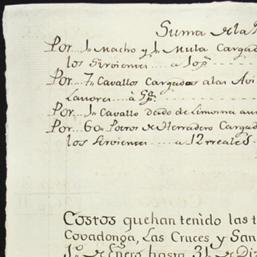 Suma de la
Por 1 Macho y 1 Mula Cargad
los Sirvientes a 10 p
Por 7 Cavallos Cargados a las Avi
Lanores a
Por 1 Cavallo dado de Limosna
Por 60 Potros de Herradero Cargad
los Sirvientes a 12 rreales
Costos que han tenido las t
Covadonga, Las Cruces y San
1º de Enero hasta 31 de Di